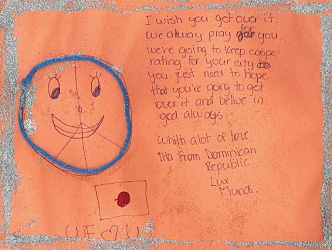 I wish you get over it.
We alway pray for you.
we're going to keep coope-
rating for your city so
you just need to hope
that you're going to get
over it and belive in
god always.
Whith a lot of love
Tita from Dominican
Republic
Lux
Mundi.